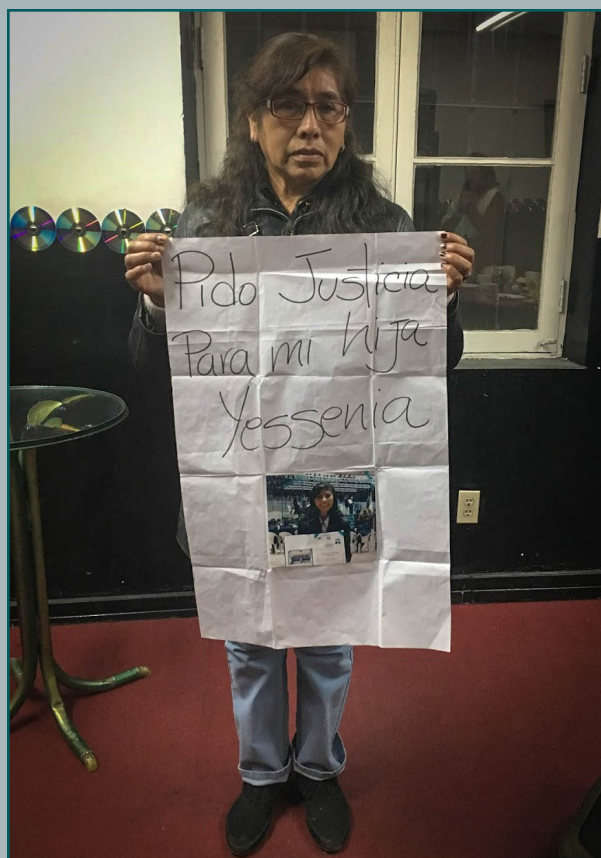 Pido Justicia
Para mi hija
Yessenia